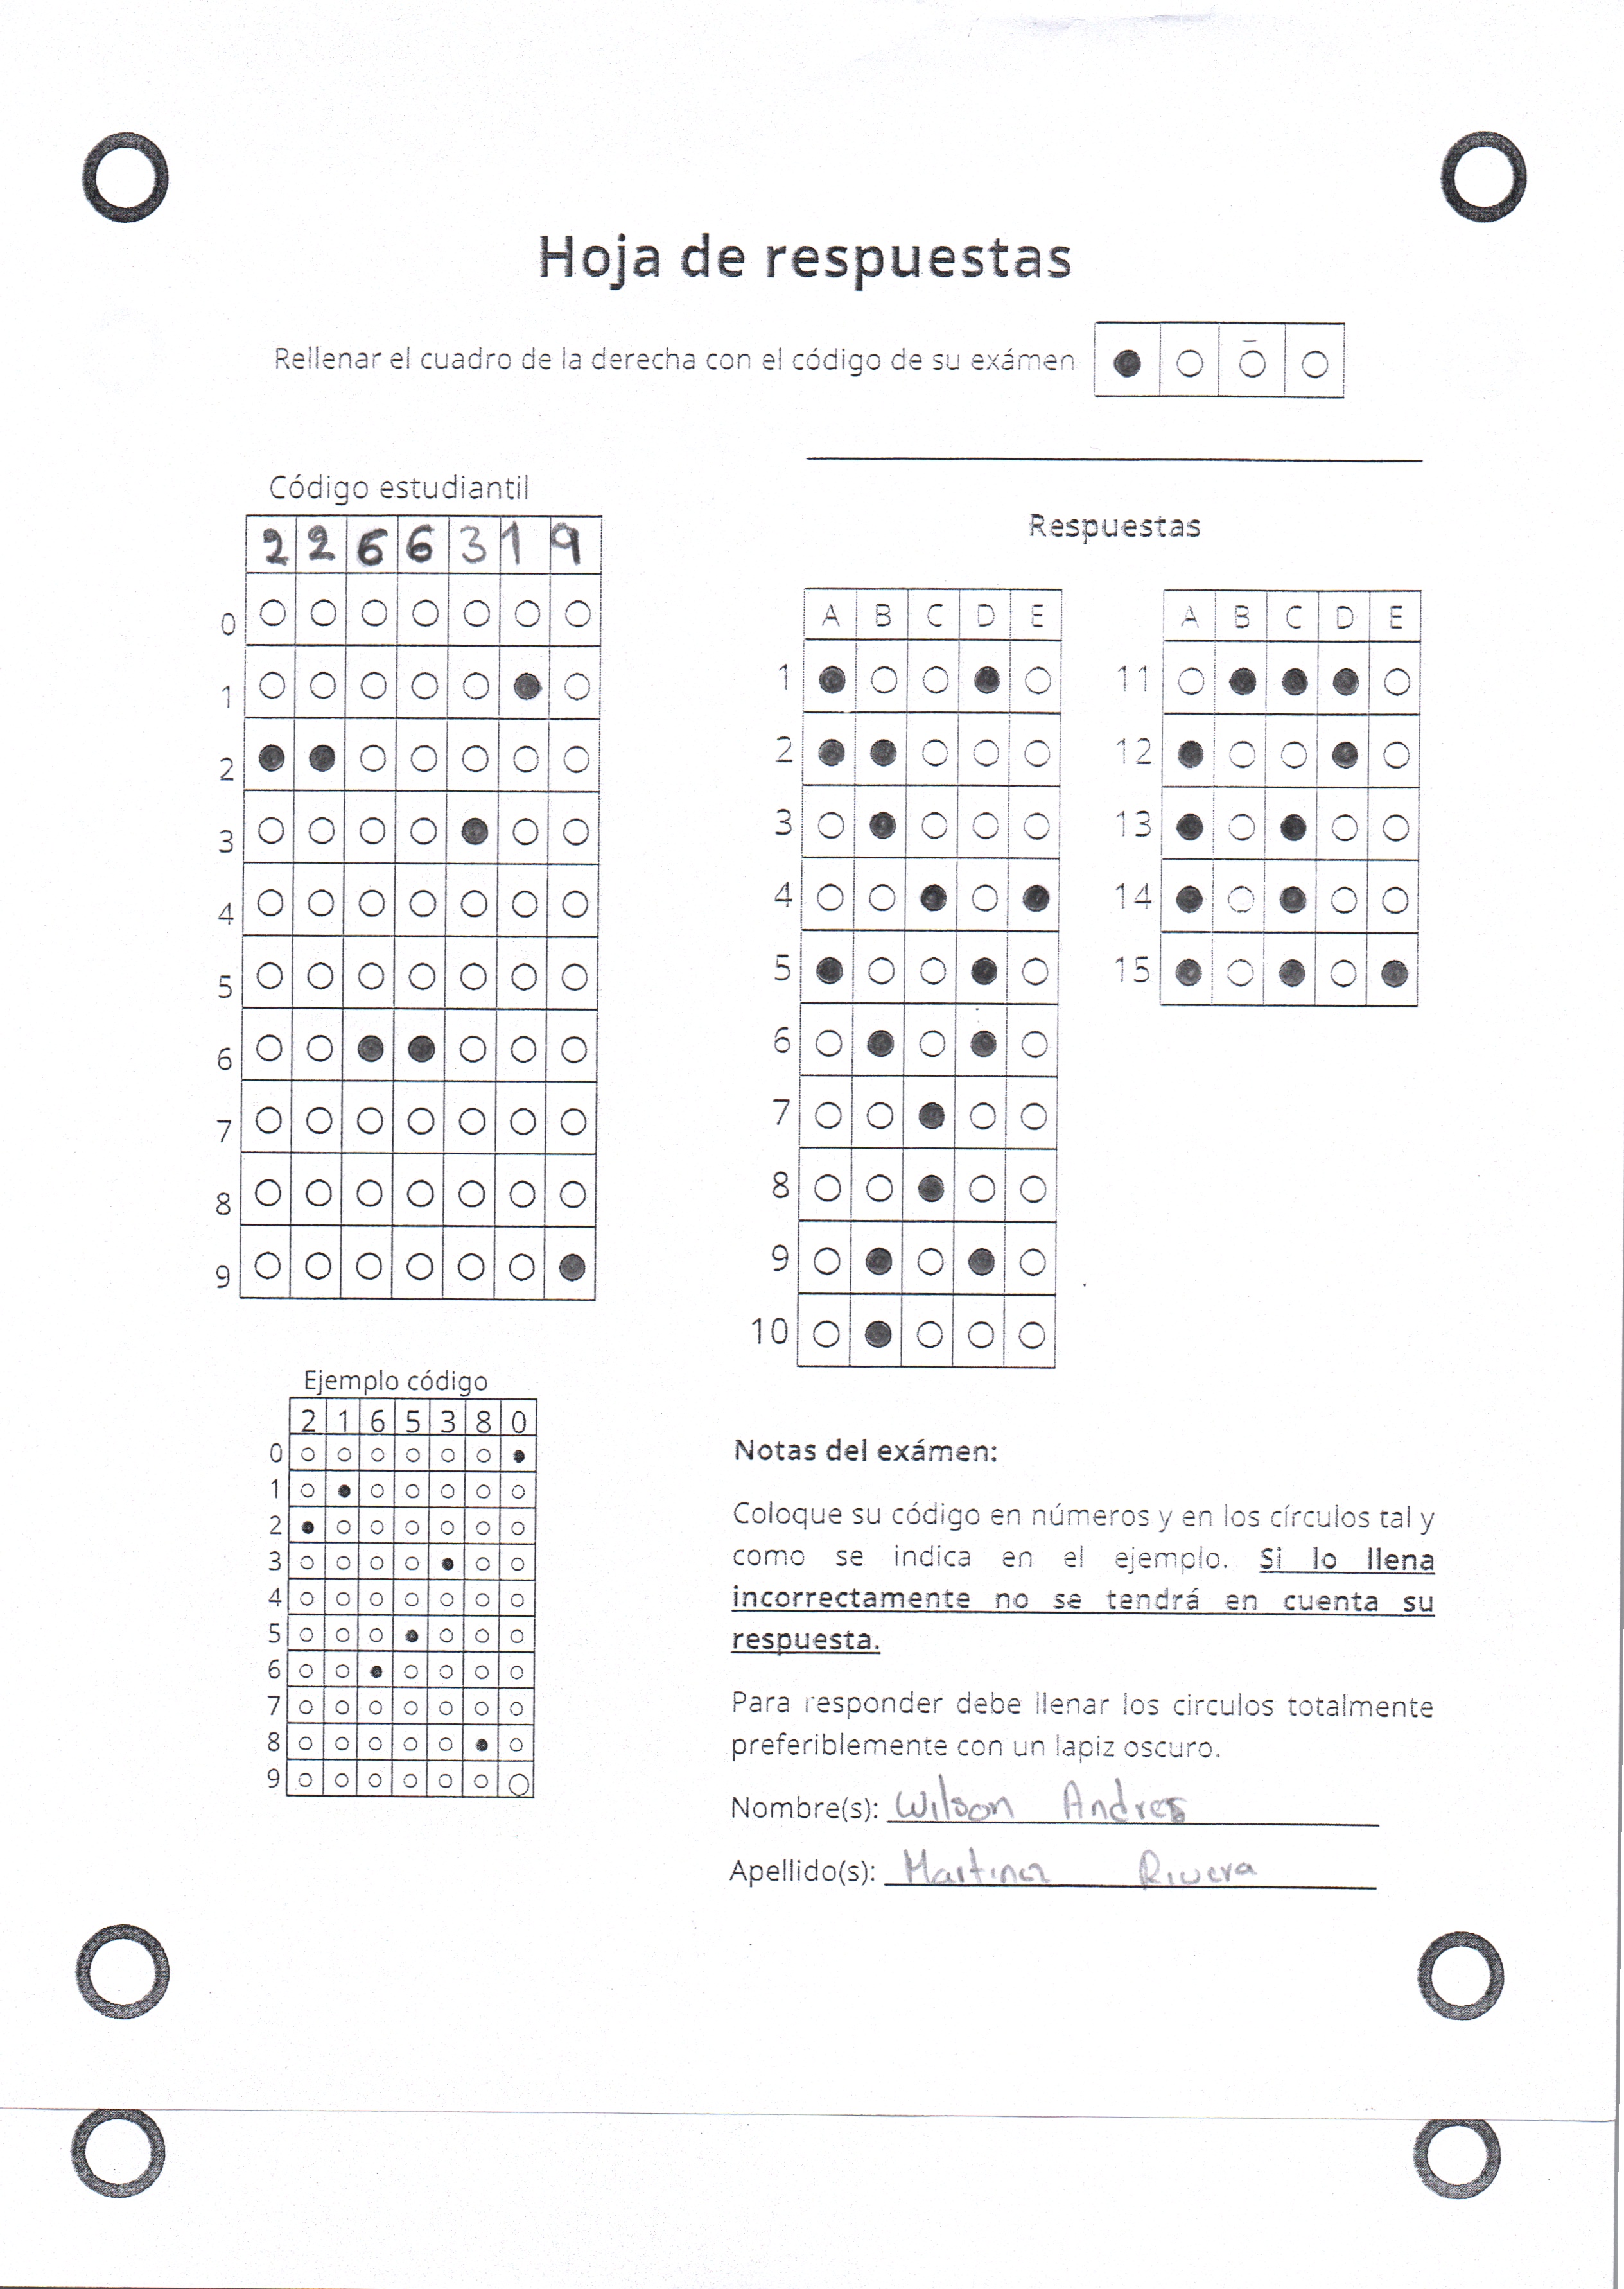 Hoja de respuestas
Rellenar el cuadro de la derecha con el código de su exámen
Código estudiantil
2 2 6 6 3 1 9
0
1
2
3
4
5
6
7
8
9
Respuestas
A B C D E
1
2
3
4
5
6
7
8
9
10
A B C D E
11
12
13
14
15
Ejemplo código
2 1 6 5 3 8 0
0
1
2
3
4
5
6
7
8
9
Notas del exámen:
Coloque su código en números y en los círculos tal y
como se indica en el ejemplo. Si lo llena
incorrectamente no se tendrá en cuenta su
respuesta.
Para responder debe llenar los circulos totalmente
preferiblemente con un lapiz oscuro.
Nombre(s): Wilson Andres
Apellido(s): Martinez Rivera